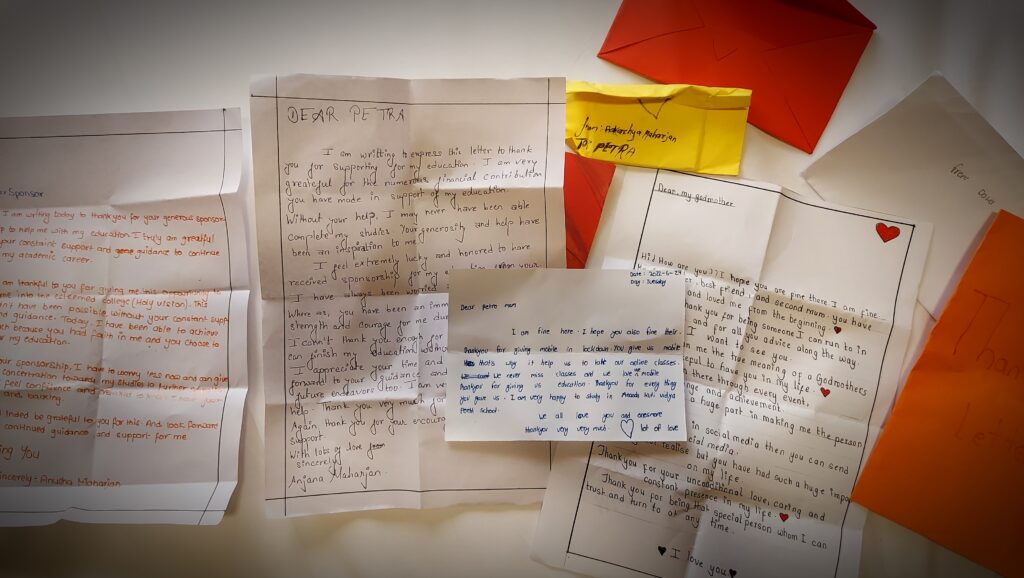 Sponsor
I am writing today to thankyou for your generous sponsor
p to help me with my education. I truly am greatful
your constant support and guidance to continue
my academic career.
am thankful to you for giving me this
me into the esteemed college (Holy vision). This
have been possible without your constant supp
and guidance. Today, I have been able to achieve
because you had faith in me and you choose to
my education.
your sponsorship, I have to worry less now and can give
concentration toward my studies to further
feel confidence
and banking.
Indeed be grateful to you for this. And look forward
continued guidance and support for me
ing You
Sincerely - Anusha Maharjan
DEAR PETRA
I am writting to express this letter to thank
you for supporting for my education. I am very
greateful for the numerous financial contribution
you have made in support of my education.
Without your help, I may never have been able
complete my studies. Your generosity and help have
been an inspiration to me.
I feel extremely lucky and honored to have
received sponsorship for my
I have always been worried
Where as, you have been an imm
strength and courage for me du
I can't thank you enough for
can finish my education witho
I appreciate your time and
forward to your guidance and
future endeavors too. I am ve
help. Thank you very much fo
Again thank you for your encour
support.
With lots of love from
sincerely
Anjana Maharjan.
from: Aakarchya Maharjan
To: PETRA
Date: 2022-6-24
Day: Tuesday
Dear petra mam
I am fine here. I hope you also fine their.
Thankyou for giving mobile in lockdown You give us mobile
thats why it help us to take our online classes
we never miss classes and we love mobile
Thankyou for giving us education. Thankyou for every thing
you gave us. I am very happy to study in
school.
We all love you and onesmore
Thankyou very very much lot of love
Dear, my godmother
Hi! How are you?? I hope you are fine there I am fine.
best friend, and second mum. you have
and loved me from the beginning.
thank you for being someone I can run to in
and for all you advice along the way.
I want to see you
me the true meaning of a Godmothers
to have you in my life.
there through every event,
and achievement.
a huge part in making me the person
in social media then you can send
social media.
realise but you have had such a huge impa
on my life.
Thankyou for your unconditional love, caring and
constant presence in my life.
Thank you for being that special person whom I can
trust and turn to at any time.
I love you
from
Than